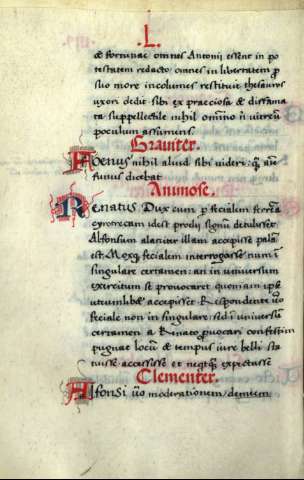 L.
& fortunae omnes Antonii essent in po
testatem redacto omnes in libertatem p
suo more incolumes restituit thesauros
uxori dedit sibi ex praeciosa & disfama
ta suppellectile nihil omnino nisi
poculum assumens.
Graviter.
Foenus nihil aliud sibi videri: q̃ ani
funus dicebat
Animose.
Renatus Dux cum p fecialem ferrea
cyrotecam idest proelij signum detulisset:
Alfonsum alaniter illam accepisse palā
est. Moxq; fecialem interrogasse num ī
singulare certamen: an in universum
exercitum se provocaret quoniam ipse
utrumlibet accepisset. Respondente vō
feciale non in singulare: sed in universū
certamen a Renato provocari confestim
pugnae locum & tempus iure belli sta
tuisse accessisse et expectasse
Clementer.
Alfonsi vō moderationem, clemen